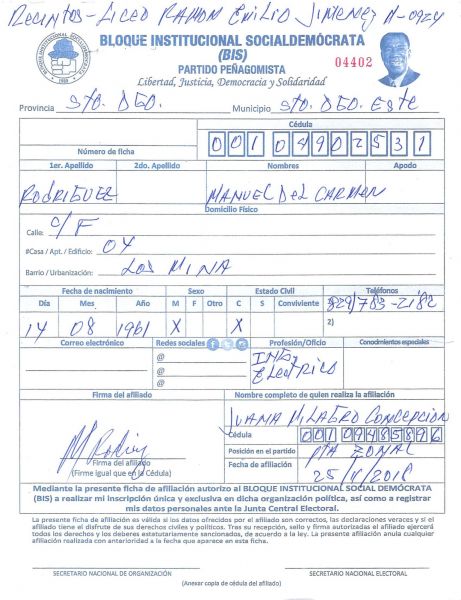 Recintos - Liceo Ramon Emilio Jimenez A-0924
BLOQUE INSTITUCIONAL SOCIALDEMÓCRATA
(BIS)
PARTIDO PEÑAGOMISTA
04402
Libertad, Justicia, Democracia y Solidaridad
Provincia Sto. Dgo. Municipio Sto. Dgo. Este
Cédula
Número de ficha 001 0490253 1
1er. Apellido 2do. Apellido Nombres Apodo
Rodriguez Manuel Del Carmen
Domicilio Físico
Calle: C/F
#Casa / Apt. / Edificio: 04
Barrio / Urbanización: Los Mina
Fecha de nacimiento Sexo Estado Civil Teléfonos
Día Mes Año M F Otro C S Conviviente 829/783-2182
14 08 1961 X X 2)
Correo electrónico Redes sociales Profesión/Oficio Conocimientos especiales
@ Ing.
@ Electrico
@
Firma del afiliado Nombre completo de quien realiza la afiliación
Juana Milagro Concepcion
Cédula 001 0948589 6
Posición en el partido Pta Zonal
Firma del afiliado Fecha de afiliación
(Firme igual que en la Cédula)
Mediante la presente ficha de afiliación autorizo al BLOQUE INSTITUCIONAL SOCIAL DEMÓCRATA
(BIS) a realizar mi inscripción única y exclusiva en dicha organización política, así como a registrar
mis datos personales ante la Junta Central Electoral.
La presente ficha de afiliación es válida si los datos ofrecidos por el afiliado son correctos, las declaraciones veraces y si el
afiliado tiene el disfrute de sus derechos civiles y políticos. Tras su recepción, sello y firma autorizadas el afiliado ejercerá
todos los derechos y los deberes estatutariamente sancionados, de acuerdo a la ley. La presente afiliación anula cualquier
afiliación realizada con anterioridad a la fecha que aparece en esta ficha.
SECRETARIO NACIONAL DE ORGANIZACIÓN SECRETARIO NACIONAL ELECTORAL
(Anexar copia de cédula del afiliado)